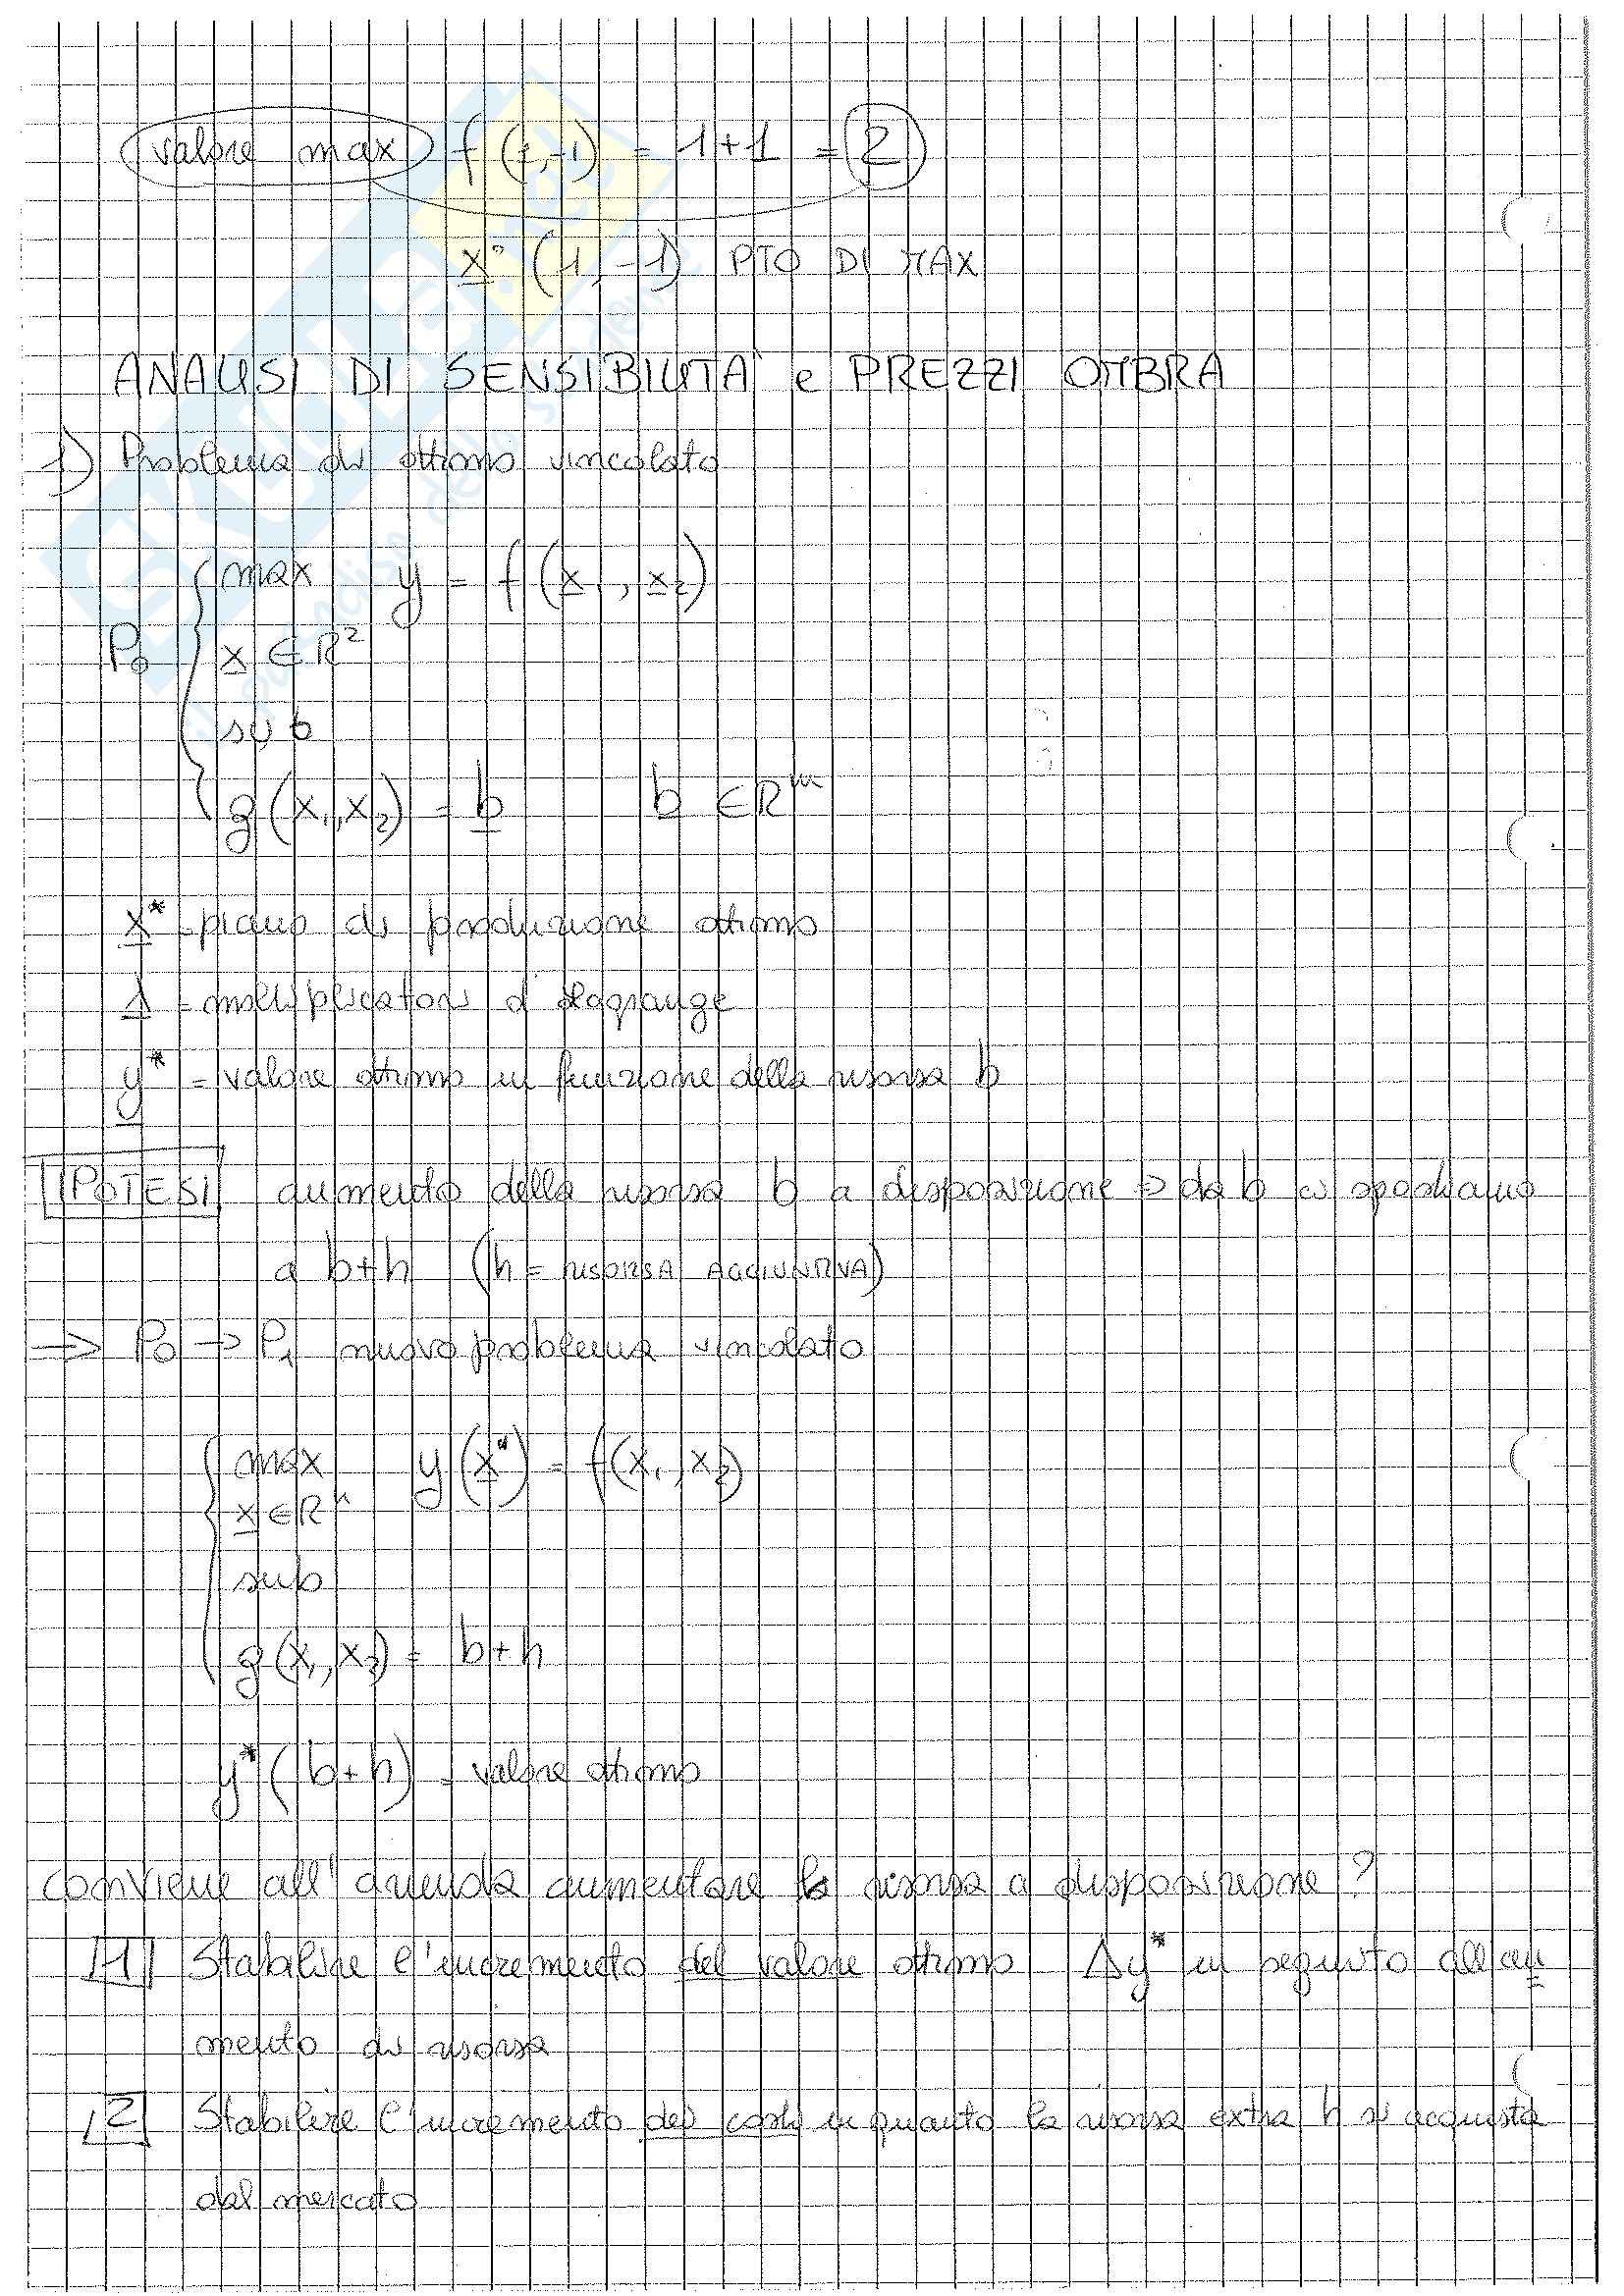 valore max f(1,-1) = 1+1 = 2
x° (1,-1) PTO DI MAX
ANALISI DI SENSIBILITÀ e PREZZI OMBRA
1) Problema di ottimo vincolato
max y = f(x₁, x₂)
P₀ x ∈ R²
sub
g(x₁, x₂) = b b ∈ Rᵐ
x* = piano di produzione ottimo
λ = moltiplicatori d Lagrange
y* = valore ottimo in funzione della risorsa b
IPOTESI aumento della risorsa b a disposizione → da b ci spostiamo
a b+h (h = RISORSA AGGIUNTIVA)
→ P₀ → P₁ nuovo problema vincolato
max y(x*) = f(x₁, x₂)
x ∈ Rⁿ
sub
g(x₁, x₂) = b+h
y*(b+h) = valore ottimo
Conviene all'azienda aumentare la risorsa a disposizione?
1 Stabilire l'incremento del valore ottimo Δy* in seguito all'au
mento di risorsa
2 Stabilire l'incremento dei costi in quanto la risorsa extra h si acquista
dal mercato